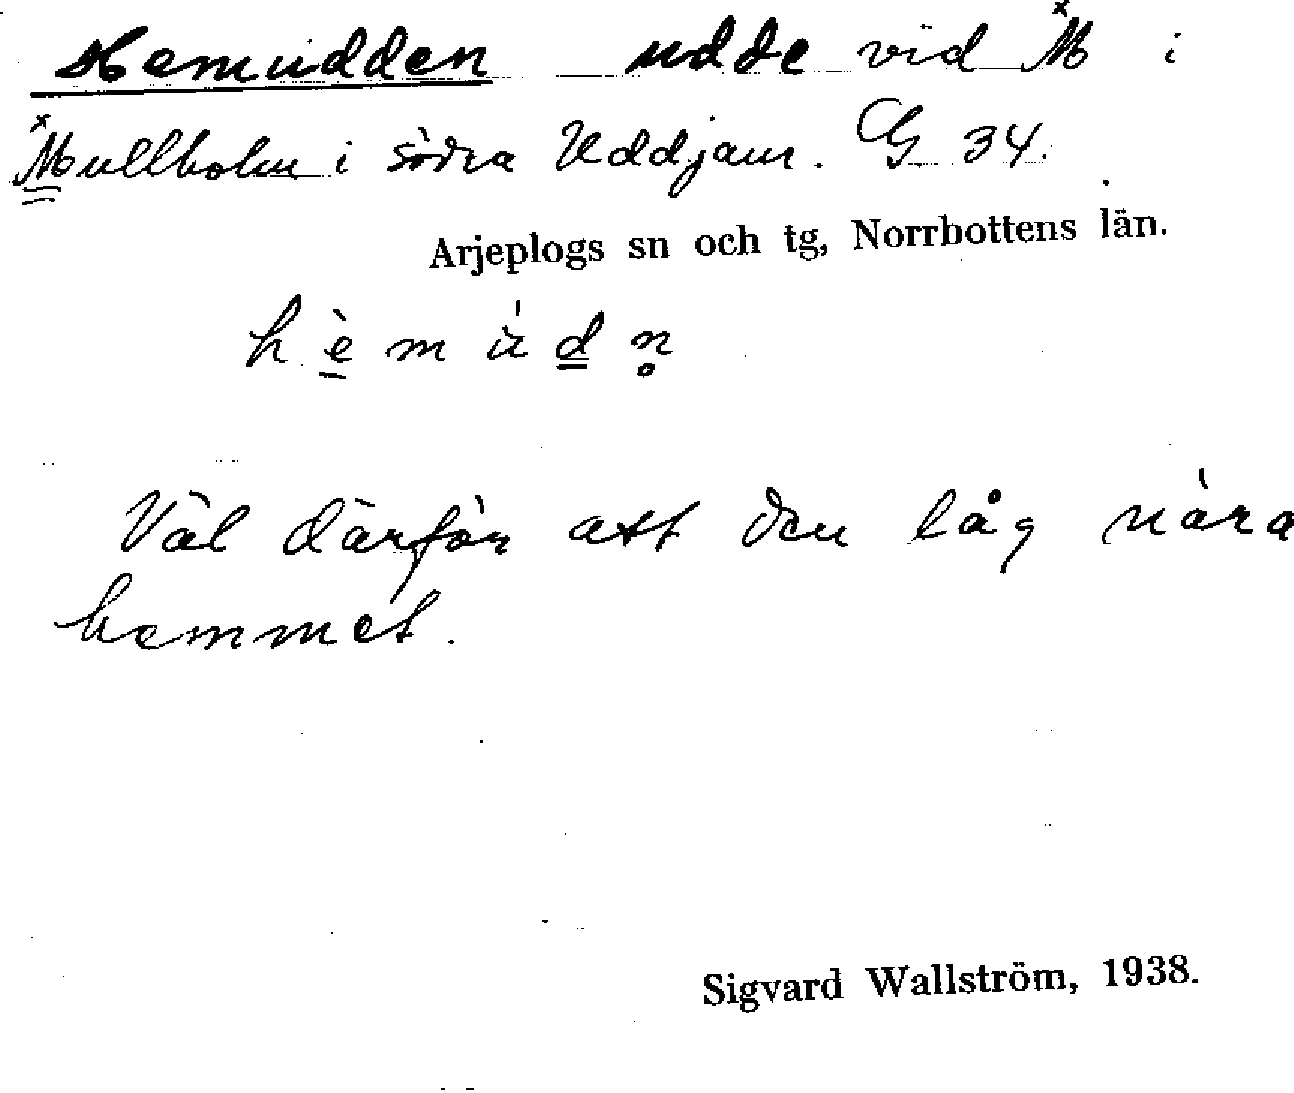 Hemudden udde vid M i
Mullholm i södra Uddjaur. G 34.
Arjeplogs sn och tg, Norrbottens län.
h è m ú d n̥
Väl därför att den låg nära
hemmet.
Sigvard Wallström, 1938.